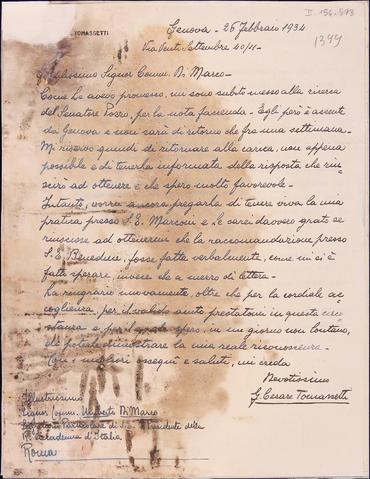 II 156.593
1344
TOMASSETTI
Genova - 26 Febbraio 1934
Via Venti Settembre 40/11 -
Gentilissimo Signor Comm. Di Marco -
Come Le avevo promesso, mi sono subito messo alla ricerca
del Senatore per la nota faccenda - Egli però è assente
da Genova e non sarà di ritorno che fra una settimana -
Mi riservo quindi di ritornare alla carica, non appena
possibile e di tenerla informata della risposta che riu-
scirò ad ottenere e che spero molto favorevole -
Intanto, vorrei ancora pregarla di tenere viva la mia
pratica presso S. E. Marconi e Le sarei davvero grato se
riuscisse ad ottenermi che la raccomandazione presso
S. E. Beneduce, fosse fatta verbalmente, come mi si è
fatto sperare, invece che a mezzo di lettera -
La ringrazio nuovamente, oltre che per la cordiale ac-
coglienza, per il valido aiuto prestatomi in questa circo
stanza e per il quale spero, in un giorno non lontano,
di poterle dimostrare la mia reale riconoscenza -
Con i migliori ossequi e saluti, mi creda
Devotissimo
Cesare Tomassetti
Illustrissimo
Signor Comm. Umberto Di Marco
Segretario Particolare di S. E. il Presidente della
R. Accademia d'Italia
Roma